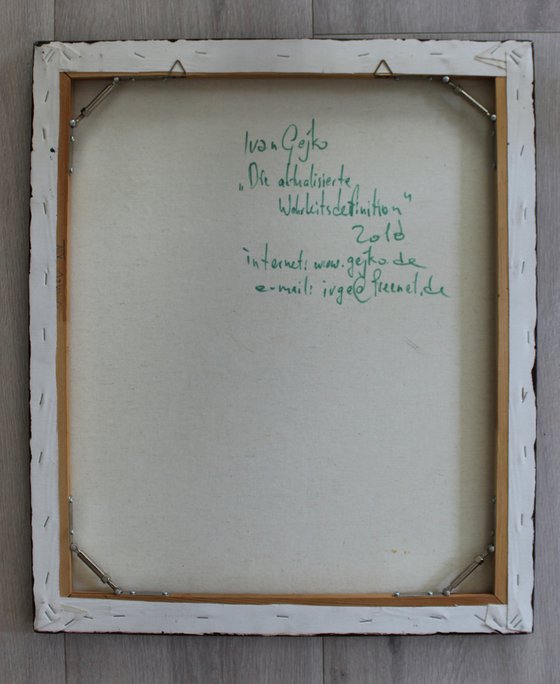 Ivan Gejko
„Die aktualisierte
Wahrheitsdefinition"
internet: www.gejko.de
e-mail: ivge@freenet.de